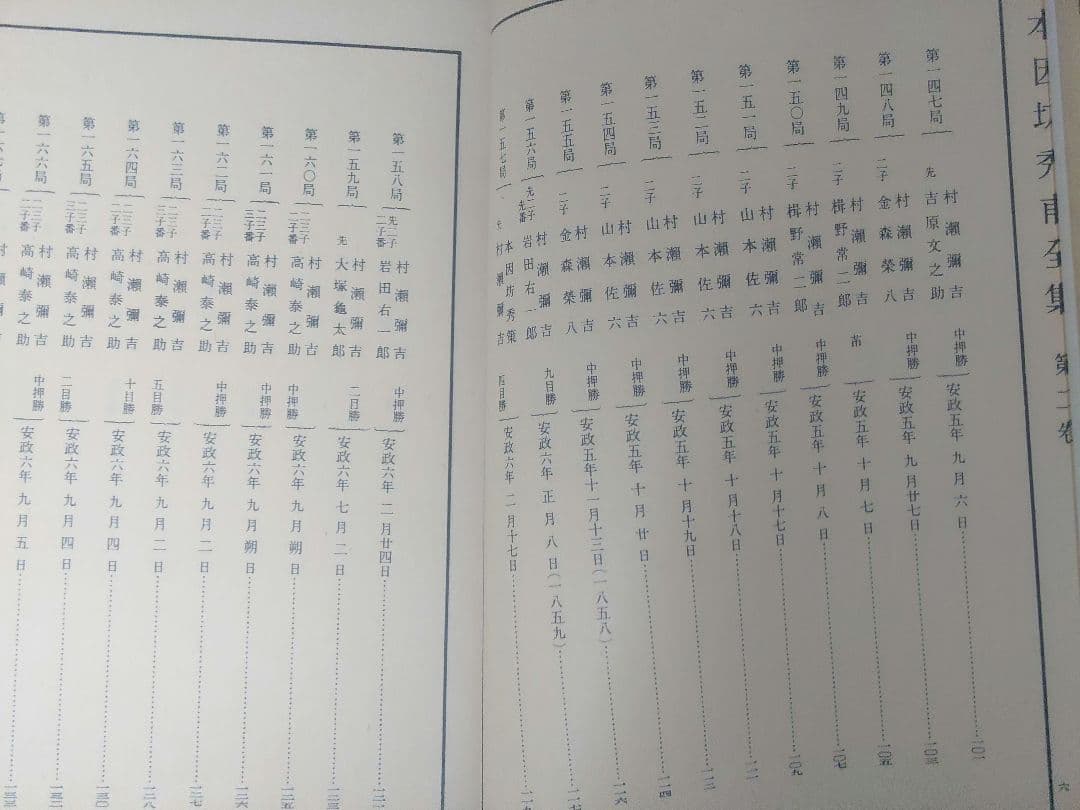 本因坊秀甫全集 第二卷
六
第一四七局 村瀬彌吉
先 吉原文之助 中押勝 安政五年 九月 六日 一〇一
第一四八局 村瀬彌吉
二子 金森榮八 中押勝 安政五年 九月廿七日 一〇三
第一四九局 村瀬彌吉
二子 楫野常二郎 芇 安政五年 十月 七日 一〇五
第一五〇局 村瀬彌吉
二子 楫野常二郎 中押勝 安政五年 十月 八日 一〇七
第一五一局 村瀬彌吉
二子 山本佐六 中押勝 安政五年 十月十七日 一〇九
第一五二局 村瀬彌吉
二子 山本佐六 中押勝 安政五年 十月十八日
第一五三局 村瀬彌吉
二子 山本佐六 中押勝 安政五年 十月十九日
第一五四局 村瀬彌吉
二子 山本佐六 中押勝 安政五年 十月廿日 一一四
第一五五局 村瀬彌吉
二子 金森榮八 中押勝 安政五年十一月十三日(一八五八) 一一六
第一五六局 先二子 村瀬彌吉
先番 岩田右一郎 九目勝 安政六年 正月 八日(一八五九)
第一五七局 本因坊秀策
先 村瀬彌吉 四目勝 安政六年 二月十七日
第一五八局 先二子 村瀬彌吉
二子番 岩田右一郎 中押勝 安政六年 二月廿四日
第一五九局 村瀬彌吉
先 大塚龜太郎 二目勝 安政六年 七月 二日
第一六〇局 二三子 村瀬彌吉
二子番 高崎泰之助 中押勝 安政六年 九月 朔日
第一六一局 二三子 村瀬彌吉
三子番 高崎泰之助 中押勝 安政六年 九月 朔日 一二六
第一六二局 二三子 村瀬彌吉
二子番 高崎泰之助 中押勝 安政六年 九月 二日 一二七
第一六三局 二三子 村瀬彌吉
三子番 高崎泰之助 五目勝 安政六年 九月 二日 一二八
第一六四局 二三子 村瀬彌吉
二子番 高崎泰之助 十目勝 安政六年 九月 四日 一三〇
第一六五局 二三子 村瀬彌吉
三子番 高崎泰之助 二目勝 安政六年 九月 四日
第一六六局 二三子 村瀬彌吉
二子番 高崎泰之助 中押勝 安政六年 九月 五日